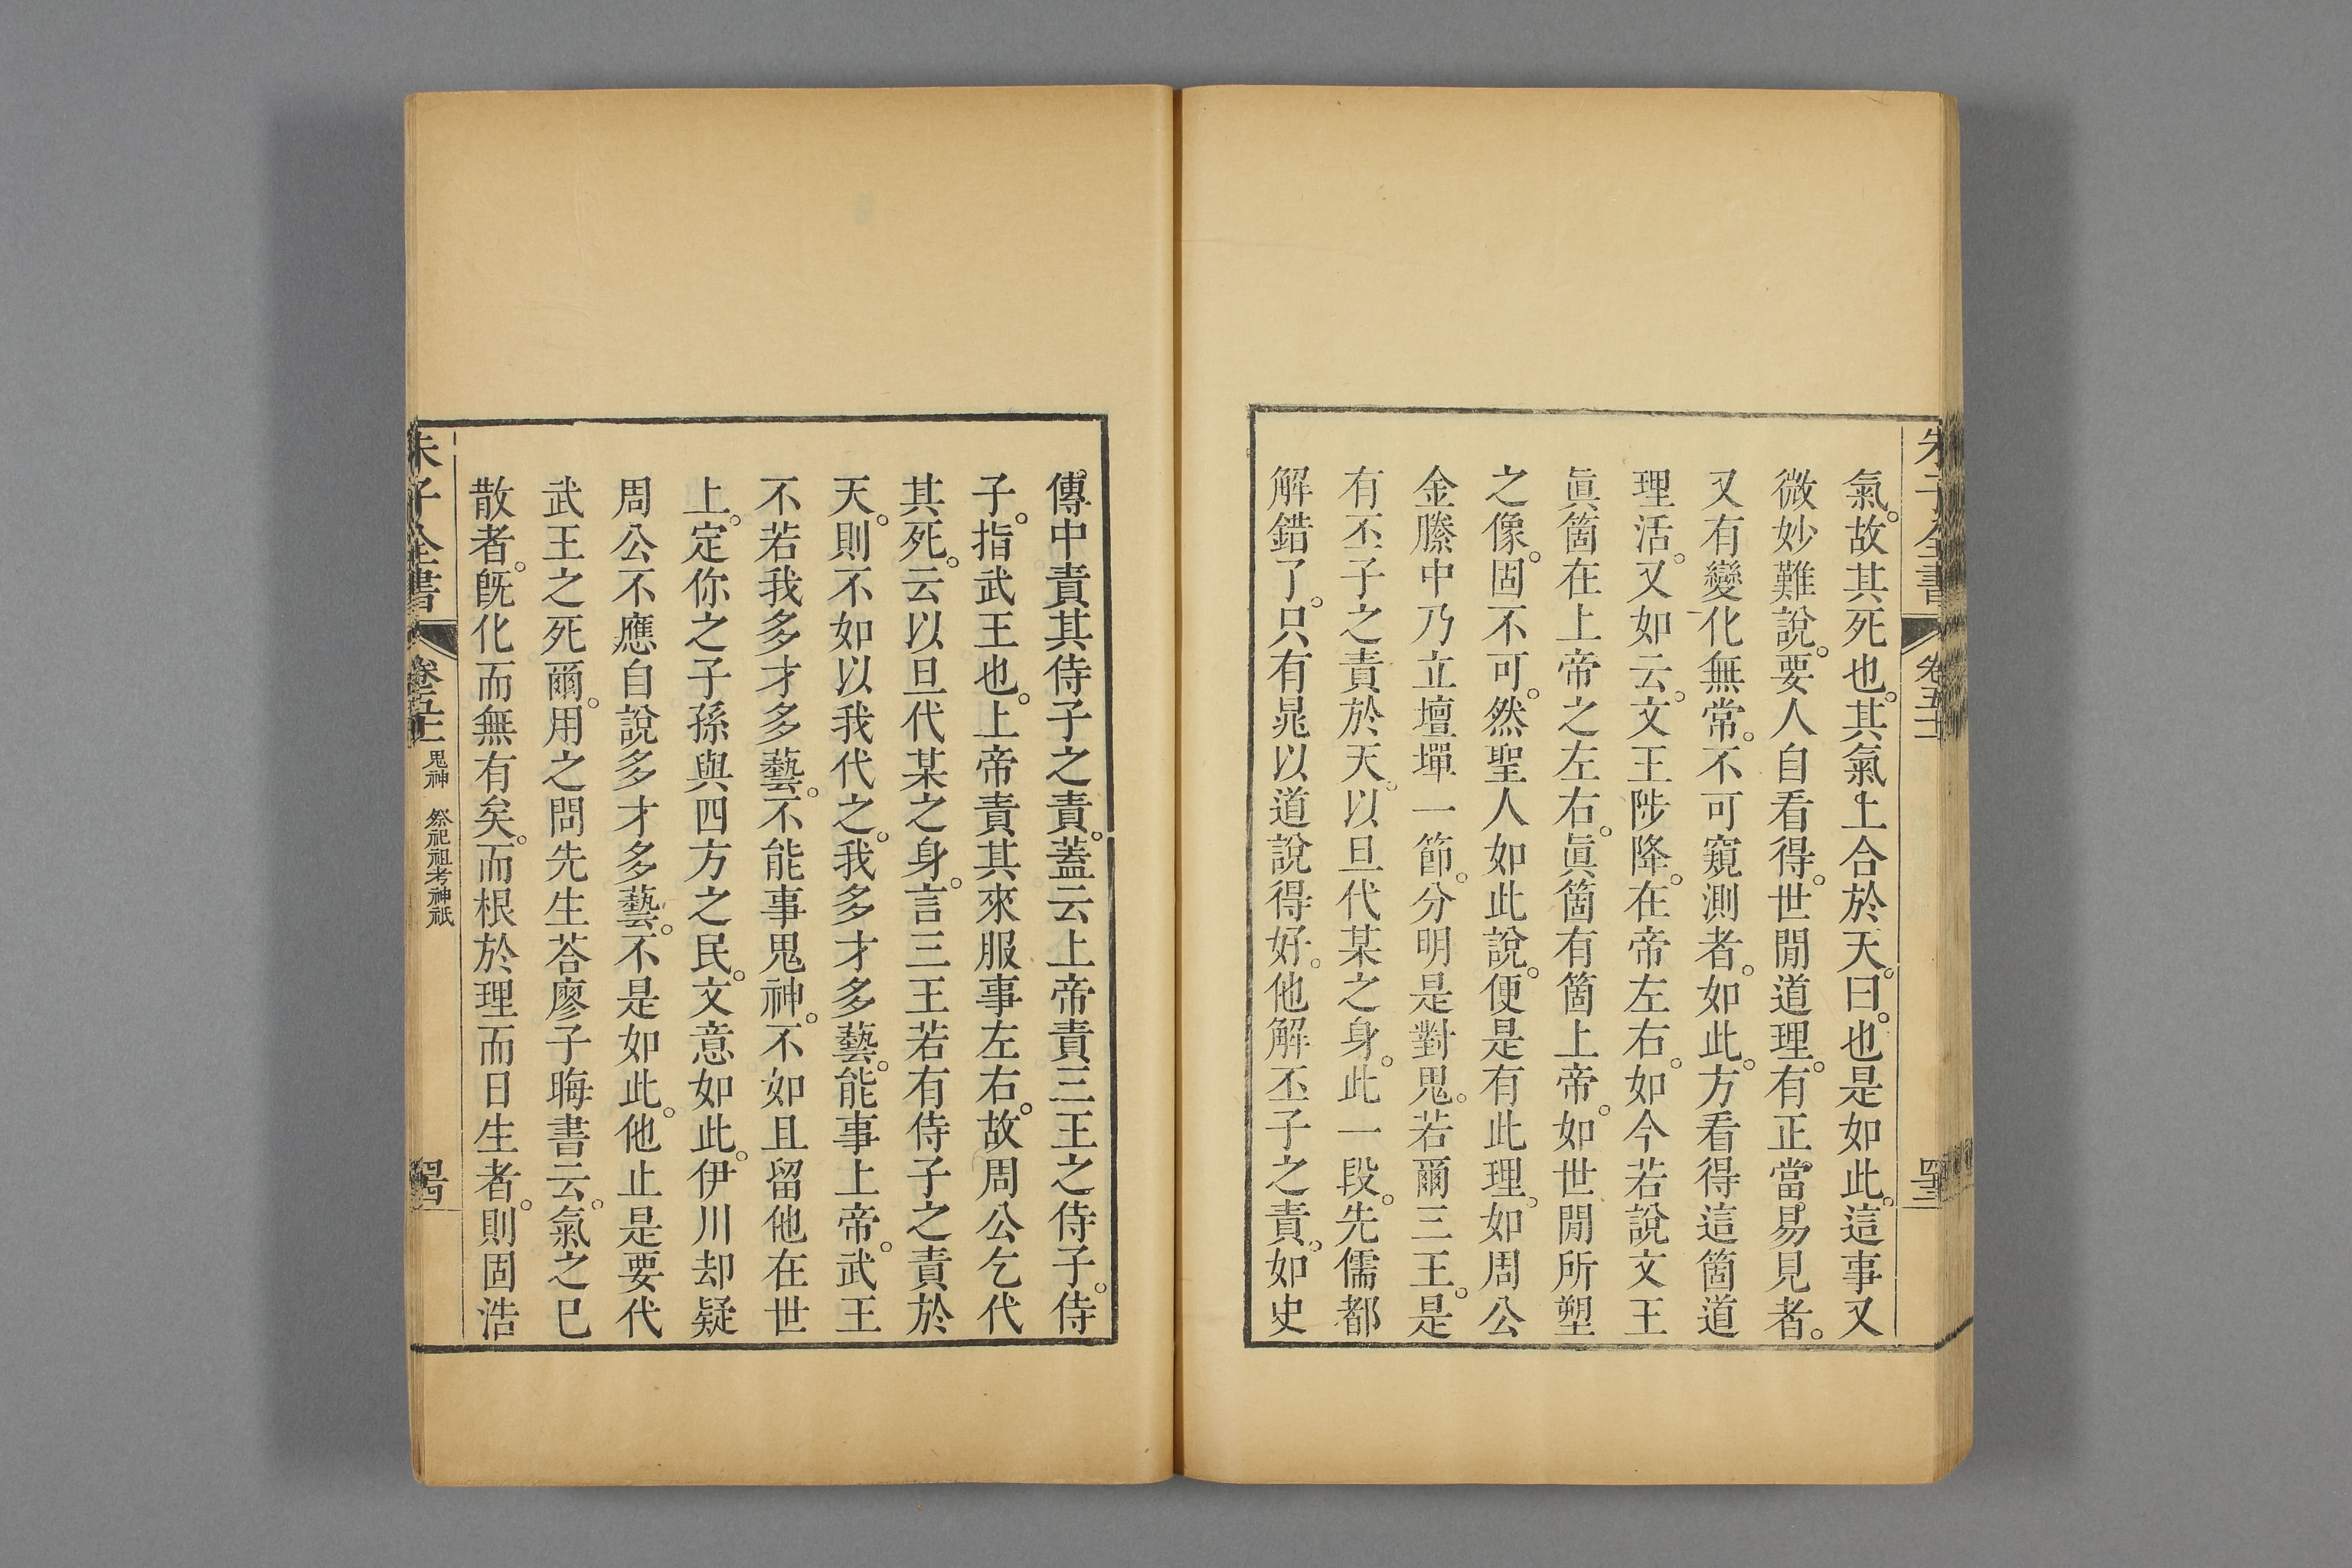 朱子全書
卷五十一
氣。故其死也。其氣上合於天。曰。也是如此。這事又
微妙難說。要人自看得。世閒道理。有正當易見者。
又有變化無常。不可窺測者。如此。方看得這箇道
理活。又如云。文王陟降。在帝左右。如今若說文王
眞箇在上帝之左右。眞箇有箇上帝。如世閒所塑
之像。固不可。然聖人如此說。便是有此理。如周公
金縢中乃立壇墠一節。分明是對鬼。若爾三王。是
有丕子之責於天。以旦代某之身。此一段。先儒都
解錯了。只有晁以道說得好。他解丕子之責。如史
傳中責其侍子之責。蓋云上帝責三王之侍子。侍
子。指武王也。上帝責其來服事左右。故周公乞代
其死。云以旦代某之身。言三王若有侍子之責於
天。則不如以我代之。我多才多藝。能事上帝。武王
不若我多才多藝。不能事鬼神。不如且留他在世
上。定你之子孫與四方之民。文意如此。伊川却疑
周公不應自說多才多藝。不是如此。他止是要代
武王之死爾。用之問先生荅廖子晦書云。氣之已
散者。旣化而無有矣。而根於理而日生者。則固浩
朱子全書
卷五十一
鬼神 祭祀祖考神祇